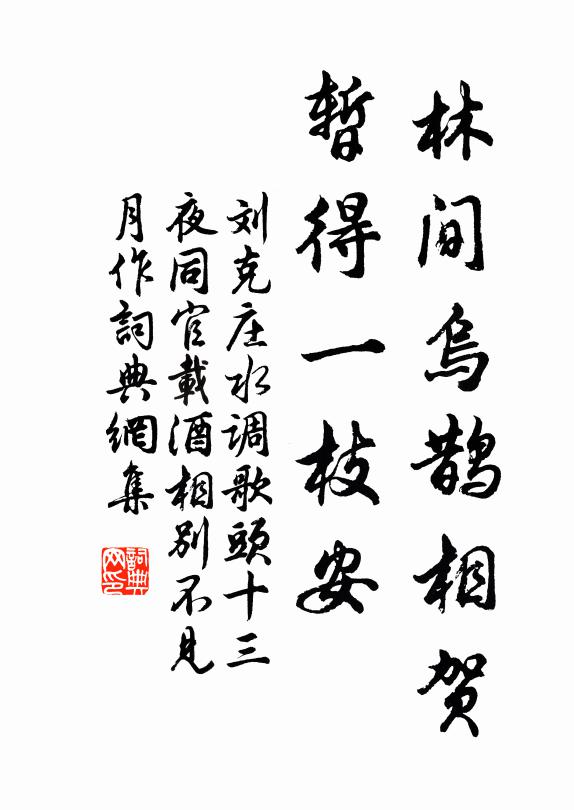 林间乌鹊相贺
暂得一枝安
刘克庄水调歌頭十三
夜同官載酒相別不見
月作詞典網集
詞典网印